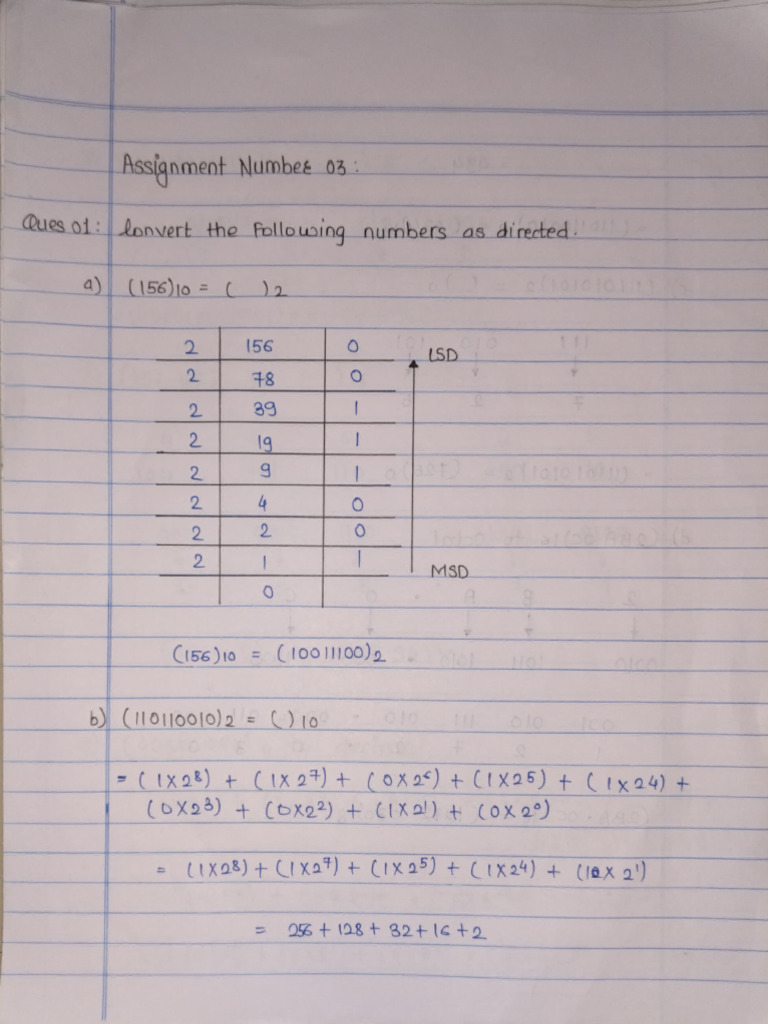 Assignment Number 03:
Ques 01: Convert the following numbers as directed.
a) (156)10 = ( )2
2 156 0 LSD
2 78 0
2 39 1
2 19 1
2 9 1
2 4 0
2 2 0
2 1 1 MSD
0
(156)10 = (10011100)2
b) (110110010)2 = ( )10
= (1X2⁸) + (1X2⁷) + (0X2⁶) + (1X2⁵) + (1X2⁴) +
(0X2³) + (0X2²) + (1X2¹) + (0X2⁰)
= (1X2⁸) + (1X2⁷) + (1X2⁵) + (1X2⁴) + (1X2¹)
= 256 + 128 + 32 + 16 + 2